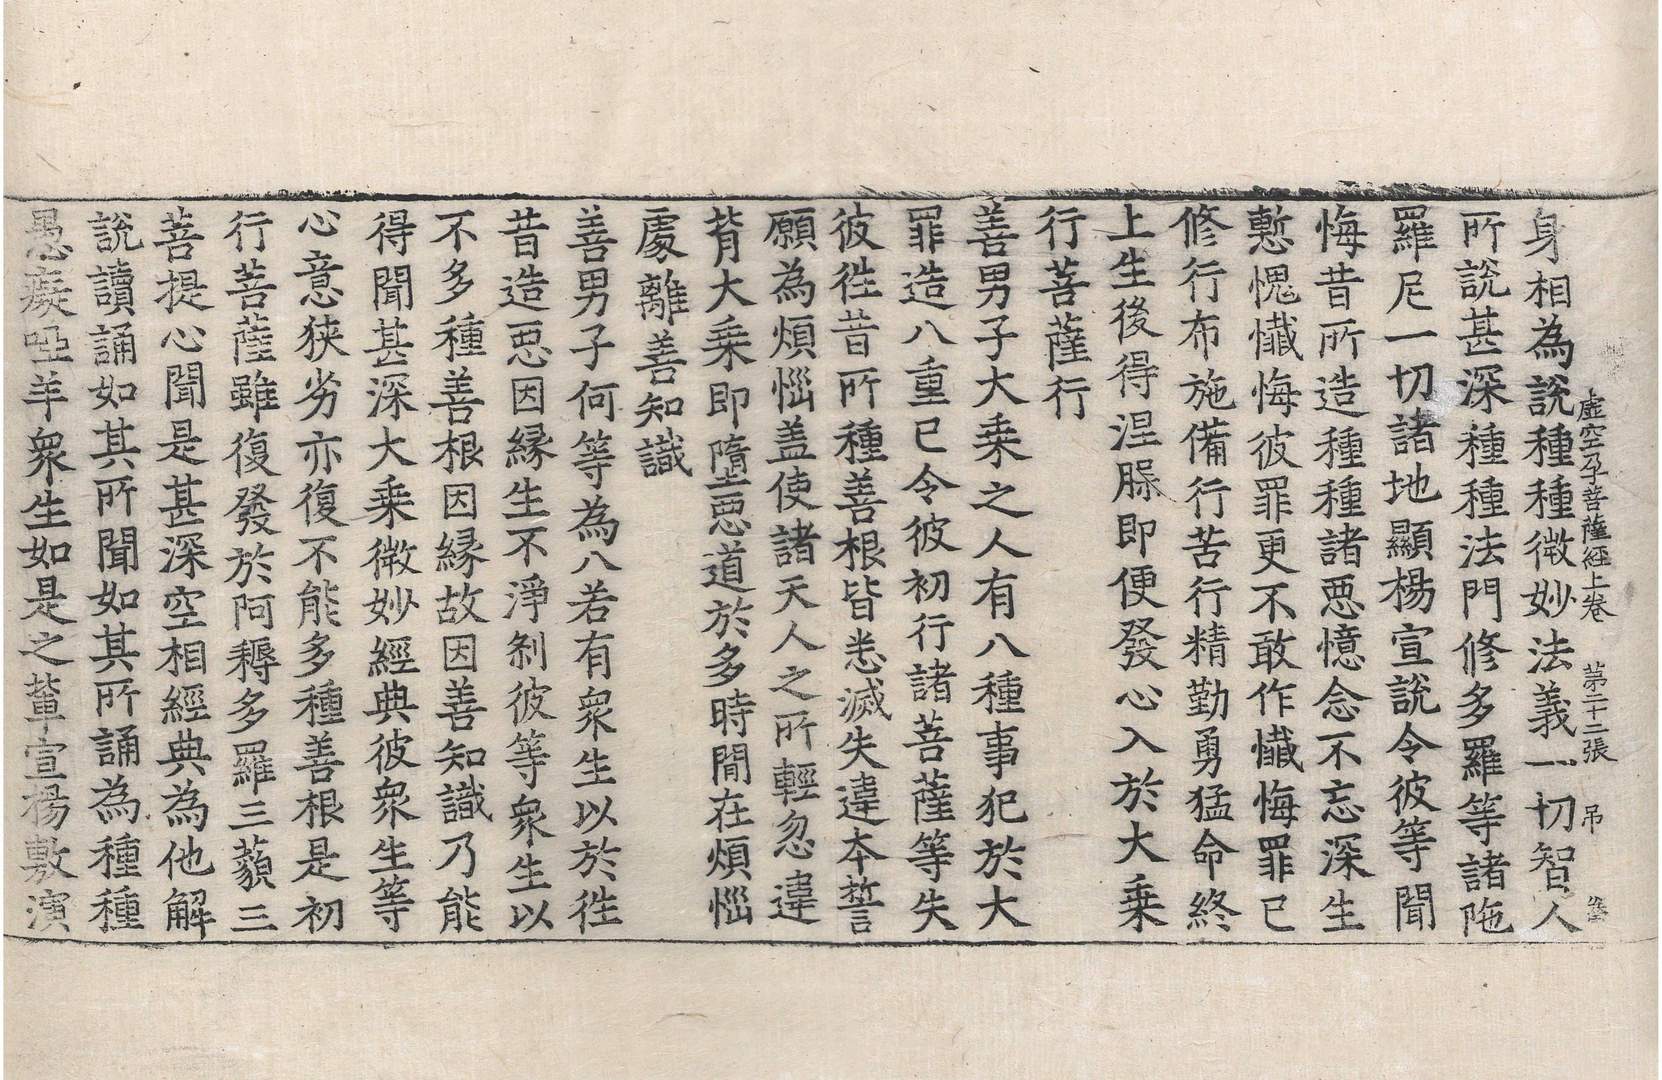 虛空孕菩薩經上卷 第二十二張 吊
身相為說種種微妙法義一切智人
所說甚深種種法門修多羅等諸陁
羅尼一切諸地顯楊宣說令彼等聞
悔昔所造種種諸惡憶念不忘深生
慙愧懺悔彼罪更不敢作懺悔罪已
修行布施備行苦行精勤勇猛命終
上生後得涅槃即便發心入於大乗
行菩薩行
善男子大乗之人有八種事犯於大
罪造八重已令彼初行諸菩薩等失
彼徃昔所種善根皆悉滅失違本誓
願為煩惱盖使諸天人之所輕忽違
背大乗即墮惡道於多時閒在煩惱
處離善知識
善男子何等為八若有衆生以於徃
昔造惡因縁生不淨剎彼等衆生以
不多種善根因縁故因善知識乃能
得聞甚深大乗微妙經典彼衆生等
心意狹劣亦復不能多種善根是初
行菩薩雖復發於阿耨多羅三藐三
菩提心聞是甚深空相經典為他解
說讀誦如其所聞如其所誦為種種
愚癡啞羊衆生如是之輩宣楊敷演